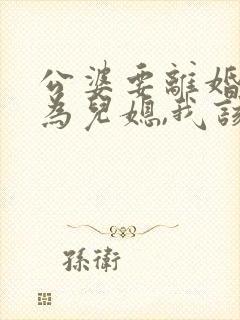 公婆要離婚
為兒媳,我該
孫衛